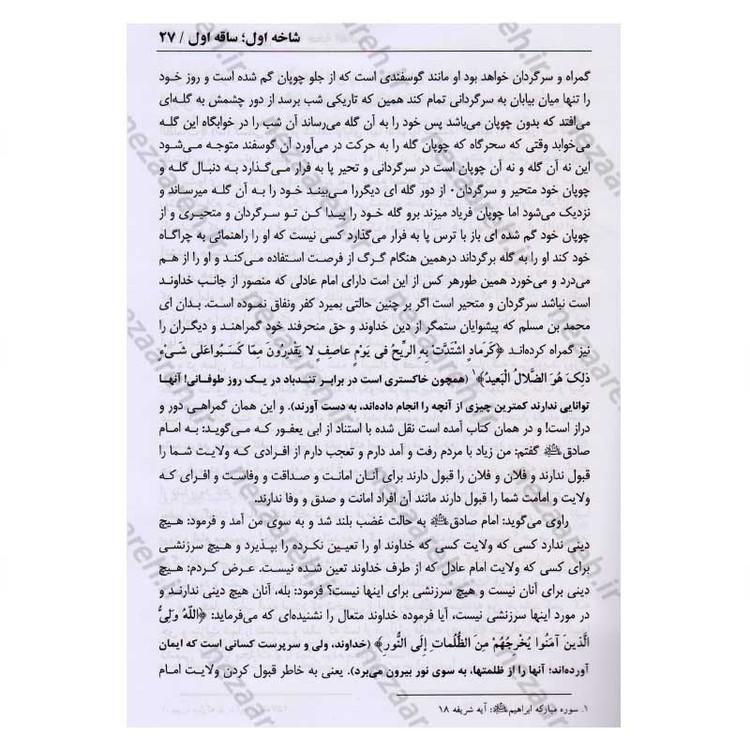 شاخه اول؛ ساقه اول / ۲۷
گمراه و سرگردان خواهد بود او مانند گوسفندی است که از جلو چوپان گم شده است و روز خود
را تنها میان بیابان به سرگردانی تمام کند همین که تاریکی شب برسد از دور چشمش به گله‌ای
می‌افتد که بدون چوپان می‌باشد پس خود را به آن گله می‌رساند آن شب را در خوابگاه این گله
می‌خوابد وقتی که سحرگاه که چوپان گله را به حرکت در می‌آورد آن گوسفند متوجه می‌شود
این نه آن گله و نه آن چوپان است در سرگردانی و تحیر پا به فرار می‌گذارد به دنبال گله و
چوپان خود متحیر و سرگردان۰ از دور گله ای دیگررا می‌بیند خود را به آن گله میرساند و
نزدیک می‌شود اما چوپان فریاد میزند برو گله خود را پیدا کن تو سرگردان و متحیری و از
چوپان خود گم شده ای باز با ترس پا به فرار می‌گذارد کسی نیست که او را راهنمائی به چراگاه
خود کند او را به گله برگرداند درهمین هنگام گرگ از فرصت استفاده می‌کند و او را از هم
می‌درد و می‌خورد همین طورهر کس از این امت دارای امام عادلی که منصور از جانب خداوند
است نباشد سرگردان و متحیر است اگر بر چنین حالتی بمیرد کفر ونفاق نموده است. بدان ای
محمد بن مسلم که پیشوایان ستمگر از دین خداوند و حق منحرفند خود گمراهند و دیگران را
نیز گمراه کرده‌اند ﴿کَرَمادٍ اشْتَدَّتْ بِهِ الرِّیحُ فی یَوْمٍ عاصِفٍ لا یَقْدِرُونَ مِمّا کَسَبُواعَلی شَیْءٍ
ذلِکَ هُوَ الضَّلالُ الْبَعیدُ﴾۱ (همچون خاکستری است در برابر تندباد در یک روز طوفانی! آنها
توانایی ندارند کمترین چیزی از آنچه را انجام داده‌اند، به دست آورند). و این همان گمراهی دور و
دراز است! و در همان کتاب آمده است نقل شده با استناد از ابی یعفور که می‌گوید: به امام
صادق گفتم: من زیاد با مردم رفت و آمد دارم و تعجب دارم از افرادی که ولایت شما را
قبول ندارند و فلان و فلان را قبول دارند برای آنان امانت و صداقت و وفاست و افرای که
ولایت و امامت شما را قبول دارند مانند آن افراد امانت و صدق و وفا ندارند.
راوی می‌گوید: امام صادق به حالت غضب بلند شد و به سوی من آمد و فرمود: هیچ
دینی ندارد کسی که ولایت کسی که خداوند او را تعیین نکرده را بپذیرد و هیچ سرزنشی
برای کسی که ولایت امام عادل که از طرف خداوند تعین شده نیست. عرض کردم: هیچ
دینی برای آنان نیست و هیچ سرزنشی برای اینها نیست؟ فرمود: بله، آنان هیچ دینی ندارند و
در مورد اینها سرزنشی نیست، آیا فرموده خداوند متعال را نشنیده‌ای که می‌فرماید: ﴿اللّهُ وَلِیُّ
الَّذینَ آمَنُوا یُخْرِجُهُمْ مِنَ الظُّلُماتِ إِلَی النُّورِ﴾ (خداوند، ولی و سرپرست کسانی است که ایمان
آورده‌اند؛ آنها را از ظلمتها، به سوی نور بیرون می‌برد). یعنی به خاطر قبول کردن ولایت امام
۱. سوره مبارکه ابراهیم: آیه شریفه ۱۸
nezaareh.ir